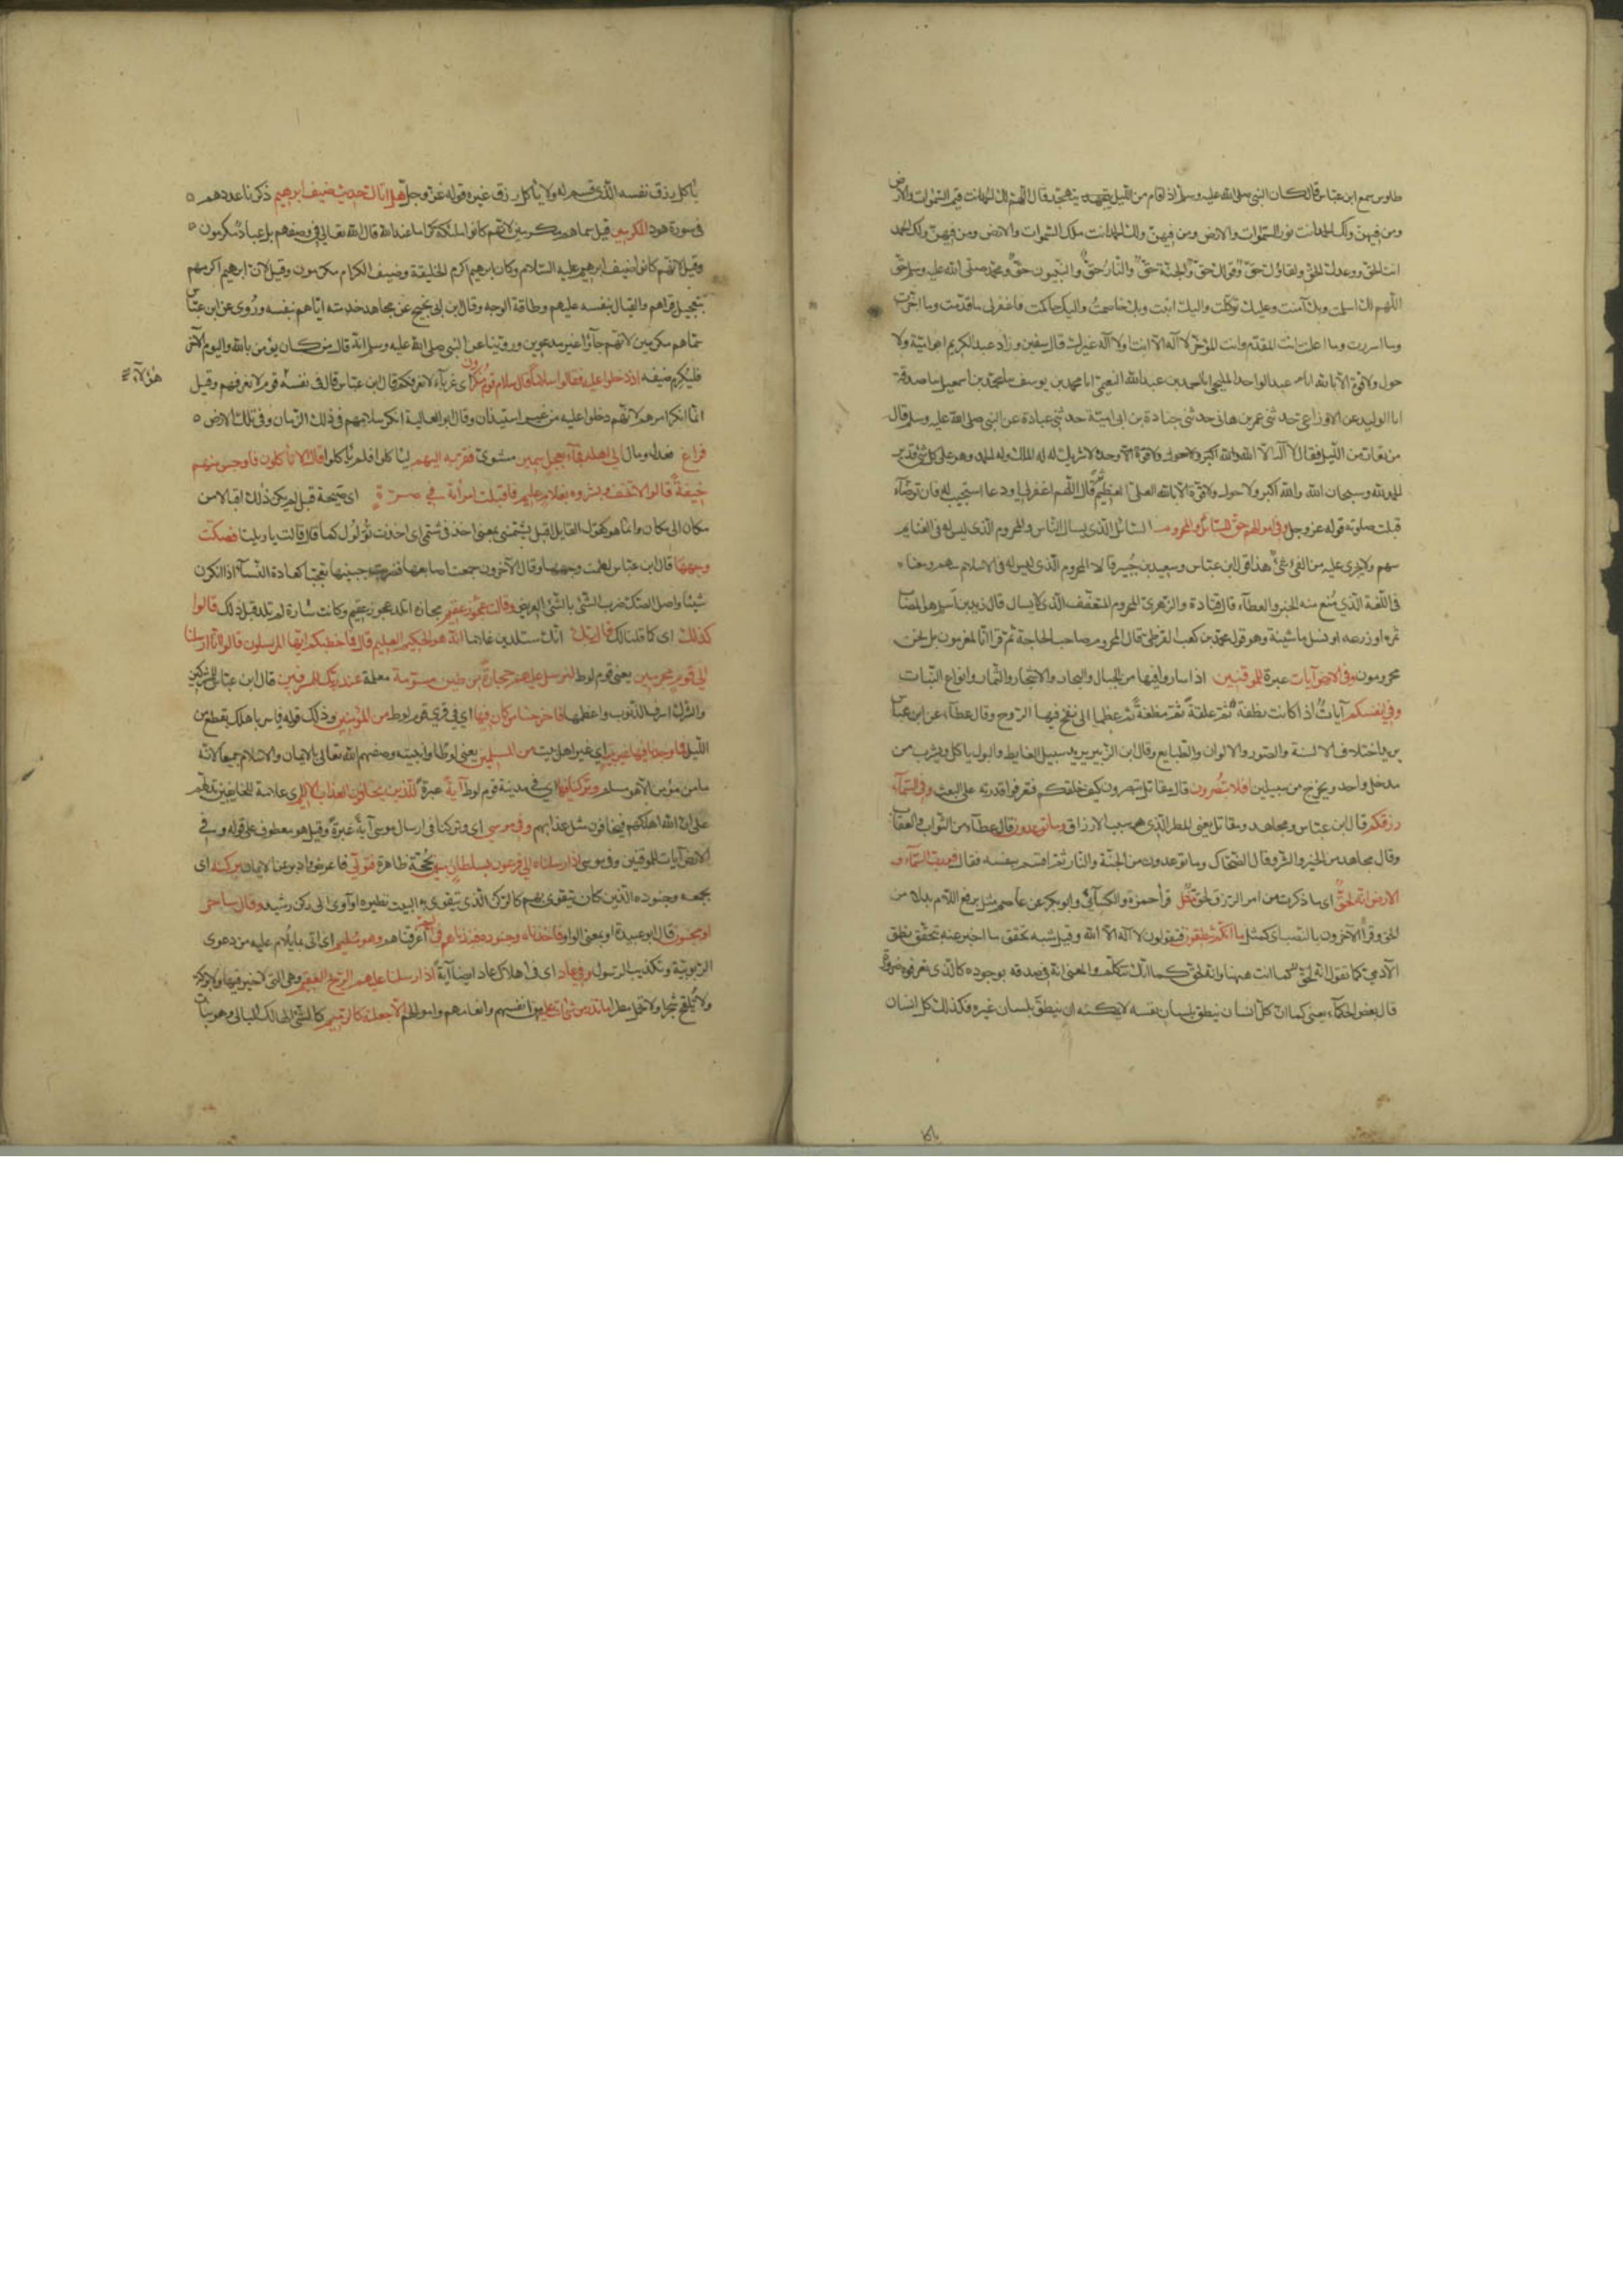 طاوس سمع ابن عباس قال كان النبي صلى الله عليه وسلم اذا قام من الليل يتهجد قال اللهم لك الحمد انت قيم السموات والارض
ومن فيهن ولك الحمد انت نور السموات والارض ومن فيهن ولك الحمد انت ملك السموات والارض ومن فيهن ولك الحمد
انت الحق ووعدك الحق ولقاؤك حق وقولك حق والجنة حق والنار حق والنبيون حق ومحمد صلى الله عليه وسلم حق
اللهم لك اسلمت وبك آمنت وعليك توكلت واليك انبت وبك خاصمت واليك حاكمت فاغفر لى ما قدمت وما اخرت
وما اسررت وما اعلنت انت المقدم وانت المؤخر لا آله الا انت ولا آله غيرك قال سفين وزاد عبد الكريم ابو امية ولا
حول ولا قوة الا بالله انا عبد الواحد المليحى انا احمد بن عبد الله النعيمى انا محمد بن يوسف نا محمد بن اسمعيل نا صدقة
انا الوليد عن الاوزاعى حدثنى عمير بن هانى حدثنى جنادة بن ابى امية حدثنى عبادة عن النبى صلى الله عليه وسلم قال
من تعار من الليل فقال لا آله الا الله والله اكبر ولا حول ولا قوة الا وحده لا شريك له له الملك وله الحمد وهو على كل شئ قدير
الحمد لله وسبحان الله والله اكبر ولا حول ولا قوة الا بالله العلى العظيم ثم قال اللهم اغفر لى او دعا استجيب له فان توضأ
قبلت صلوته قوله عز وجل وفى اموالهم حق للسائل والمحروم السائل الذى يسال الناس والمحروم الذى ليس له فى الغنايم
سهم ولا يجرى عليه من الفئ شئ هذا قول ابن عباس وسعيد بن جبير قالا المحروم الذى ليس له فى الاسلام سهم ومعناه
فى اللغة الذى منع منه الخير والعطاء قال قتادة والزهرى المحروم المتعفف الذى لا يسال قال زيد بن اسلم هو المصاب
ثمره او زرعه او نسل ماشيته وهو قول محمد بن كعب القرظى قال المحروم صاحب الحاجة ثم قرا انا لمغرمون بل نحن
محرومون وفى الارض آيات عبرة للموقنين اذا ساروا فيها من الجبال والبحار والاشجار والثمار وانواع النبات
وفى انفسكم آيات اذ كانت نطفة ثم علقة ثم مضغة ثم عظما الى نفخ فيها الروح وقال عطاء عن ابن عباس
يريد اختلاف الالسنة والصور والالوان والطبايع وقال ابن الزبير يريد سبيل الغايط والبول ياكل ويشرب من
مدخل واحد ويخرج من سبيلين افلا تبصرون قال مقاتل تبصرون كيف خلقكم فتعرفوا قدرته على البعث وفى السماء
رزقكم قال ابن عباس ومجاهد ومقاتل يعنى المطر الذى هو سبب الارزاق وما توعدون قال عطاء من الثواب والعقاب
وقال مجاهد من الخير والشر وقال الضحاك وما توعدون من الجنة والنار ثم اقسم بنفسه فقال فورب السماء و
الارض انه لحق اى ما ذكرت من امر الرزق لحق مثل قرأ حمزة والكسائى وابو بكر عن عاصم مثل برفع اللام بدلا من
الحق وقرأ الآخرون بالنصب اى كمثل ما انكم تنطقون فتقولون لا آله الا الله وقيل شبه تحقق ما اخبر عنه بتحقق نطق
الآدمى كما تقول انه لحق كما انت ههنا وانه لحق كما انك تتكلم والمعنى انه فى صدقه بوجوده كالذى تعرفه ضرورة
قال بعض الحكماء يعنى كما ان كل انسان ينطق بلسان نفسه لا يمكنه ان ينطق بلسان غيره فكذلك كل انسان
يأكل رزق نفسه الذى قسم له ولا يأكل رزق غيره قوله عز وجل هل اتاك حديث ضيف ابرهيم ذكرنا عددهم
فى سورة هود المكرمين قيل سماهم مكرمين لانهم كانوا ملئكة كراما عند الله قال الله تعالى فى وصفهم بل عباد مكرمون
وقيل لانهم كانوا ضيف ابرهيم عليه السلام وكان ابرهيم اكرم الخليقة وضيف الكرام مكرمون وقيل لان ابرهيم اكرمهم
بتعجيل قراهم والقيام بنفسه عليهم وطلاقة الوجه وقال ابن ابى نجيح عن مجاهد خدمته اياهم بنفسه وروى عن ابن عباس
سماهم مكرمين لانهم جاؤا غير مدعوين وروينا عن النبى صلى الله عليه وسلم انه قال من كان يؤمن بالله واليوم الآخر
فليكرم ضيفه اذ دخلوا عليه فقالوا سلاما قال سلام قوم منكرون اى غرباء لا نعرفكم قال ابن عباس قال فى نفسه قوم لا نعرفهم وقيل
هؤلاء
انما انكر امرهم لانهم دخلوا عليه من غير استيذان وقال ابو العالية انكر سلامهم فى ذلك الزمان وفى تلك الارض
فراغ فعدل ومال الى اهله فجاء بعجل سمين مشوى فقربه اليهم ليأكلوا فلم يأكلوا قال الا تأكلون فاوجس منهم
خيفة قالوا لا تخف وبشروه بغلام عليم فاقبلت امرأته فى صرة اى صيحة قيل لم يكن ذلك اقبالا من
مكان الى مكان وانما هو كقول القايل اقبل يشتمنى بمعنى اخذ فى شتمى اى اخذت تولول كما قال قالت يا ويلتا فصكت
وجهها قال ابن عباس لطمت وجهها وقال الآخرون جمعت اصابعها فضربت جبينها تعجبا كعادة النساء اذا انكرن
شيئا واصل الصك ضرب الشئ بالشئ العريض وقالت عجوز عقيم مجازه اتلد عجوز عقيم وكانت سارة لم تلد قبل ذلك قالوا
كذلك اى كما قلنا لك قال ربك انك ستلدين غلاما انه هو الحكيم العليم قال فما خطبكم ايها المرسلون قالوا انا ارسلنا
الى قوم مجرمين يعنى قوم لوط لنرسل عليهم حجارة من طين مسومة معلمة عند ربك للمسرفين قال ابن عباس للمشركين
والشرك اسرف الذنوب واعظمها فاخرجنا من كان فيها اى فى قرى قوم لوط من المؤمنين وذلك قوله فاسر باهلك بقطع من
الليل فما وجدنا فيها غير بيت اى غير اهل بيت من المسلمين يعنى لوطا وابنتيه وصفهم الله تعالى بالايمان والاسلام جميعا لانه
ما من مؤمن الا هو مسلم وتركنا فيها اى فى مدينة قوم لوط آية عبرة للذين يخافون العذاب الاليم اى علامة للخايفين تدلهم
على ان الله اهلكهم فيخافون مثل عذابهم وفى موسى اى وتركنا فى ارسال موسى آية عبرة وقيل هو معطوف على قوله وفى
الارض آيات للموقنين وفى موسى اذ ارسلناه الى فرعون بسلطان مبين بحجة ظاهرة فتولى فاعرض وادبر عن الايمان بركنه اى
بجمعه وجنوده الذين كان يتقوى بهم كالركن الذى يتقوى به البيت نظيره او آوى الى ركن رشيد وقال ساحر
او مجنون قال ابو عبيدة او بمعنى الواو فاخذناه وجنوده فنبذناهم فى اليم اغرقناهم وهو مليم اى اتى بما يلام عليه من دعوى
الربوبية وتكذيب الرسول وفى عاد اى فى اهلاك عاد ايضا آية اذ ارسلنا عليهم الريح العقيم وهى التى لا خير فيها ولا بركة
ولا تلقح شجرا ولا تحمل مطرا ما تذر من شئ اتت عليه من انفسهم وانعامهم واموالهم الا جعلته كالرميم كالشئ الهالك البالى وهو نبات